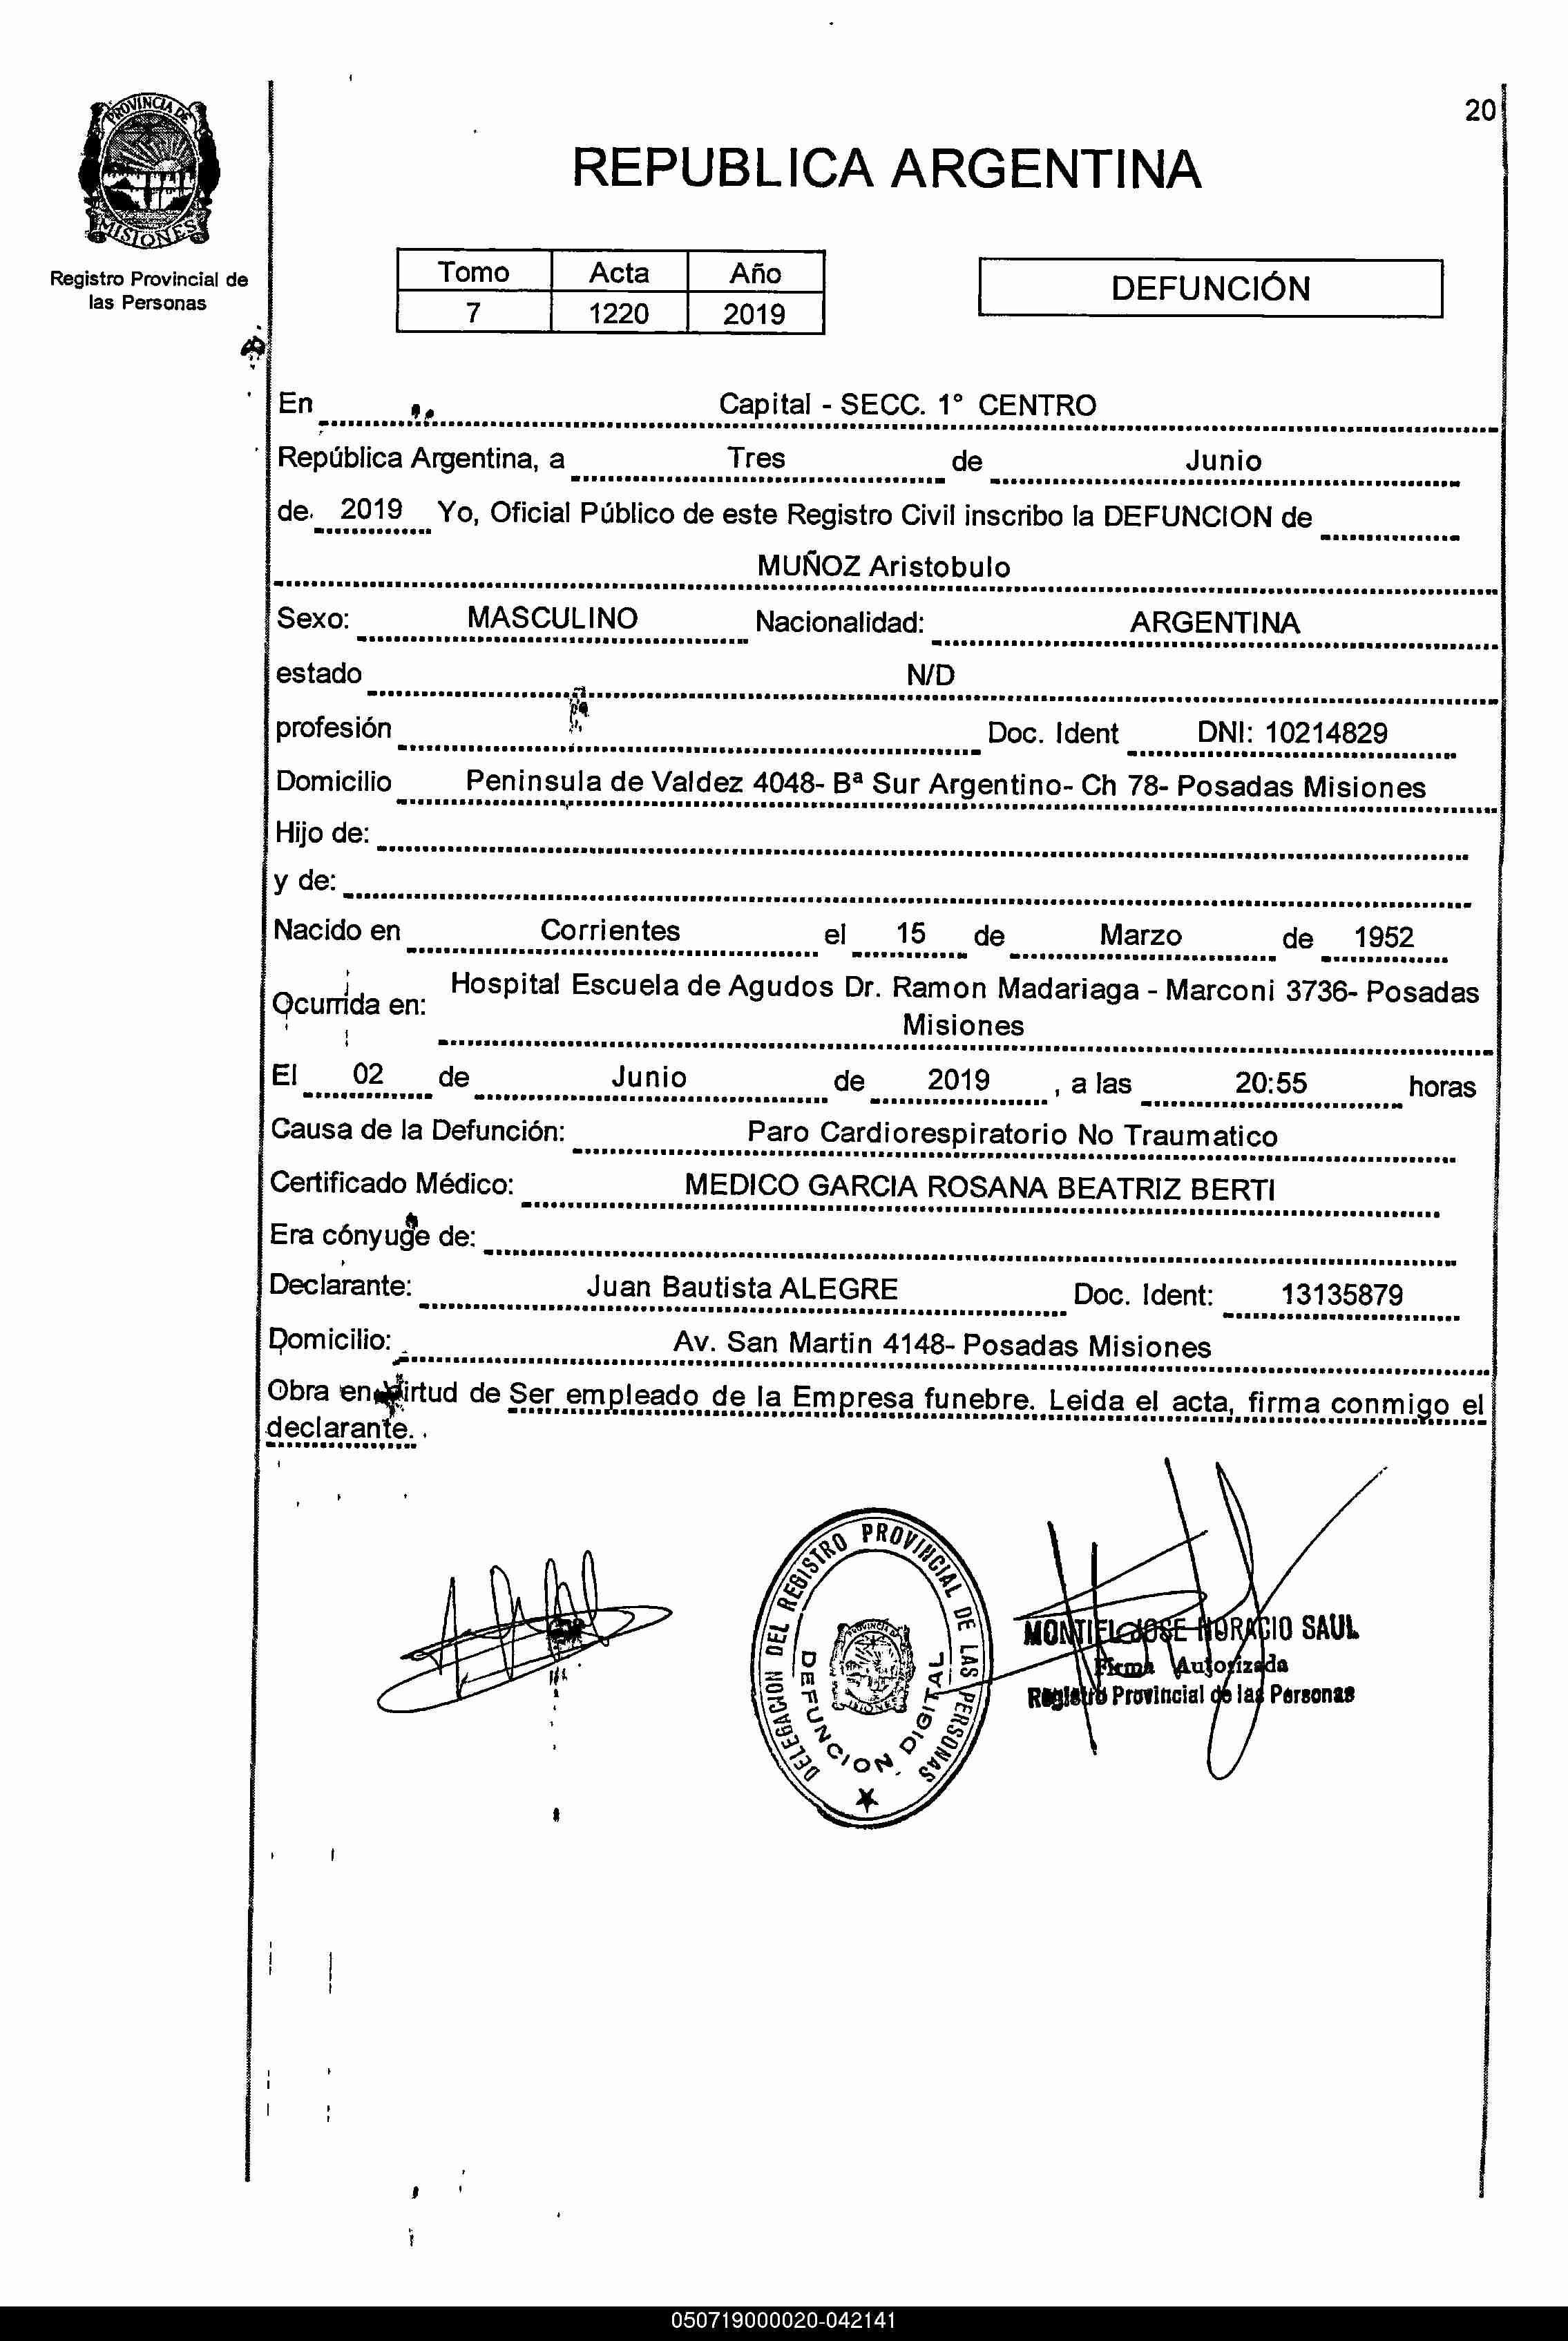 20
PROVINCIA DE
MISIONES
Registro Provincial de
las Personas
REPUBLICA ARGENTINA
Tomo Acta Año
7 1220 2019
DEFUNCIÓN
En Capital - SECC. 1° CENTRO
República Argentina, a Tres de Junio
de 2019 Yo, Oficial Público de este Registro Civil inscribo la DEFUNCION de
MUÑOZ Aristobulo
Sexo: MASCULINO Nacionalidad: ARGENTINA
estado N/D
profesión Doc. Ident DNI: 10214829
Domicilio Peninsula de Valdez 4048- Bª Sur Argentino- Ch 78- Posadas Misiones
Hijo de:
y de:
Nacido en Corrientes el 15 de Marzo de 1952
Ocurrida en: Hospital Escuela de Agudos Dr. Ramon Madariaga - Marconi 3736- Posadas
Misiones
El 02 de Junio de 2019 , a las 20:55 horas
Causa de la Defunción: Paro Cardiorespiratorio No Traumatico
Certificado Médico: MEDICO GARCIA ROSANA BEATRIZ BERTI
Era cónyuge de:
Declarante: Juan Bautista ALEGRE Doc. Ident: 13135879
Domicilio: Av. San Martin 4148- Posadas Misiones
Obra en virtud de Ser empleado de la Empresa funebre. Leida el acta, firma conmigo el
declarante.
DELEGACION DEL REGISTRO PROVINCIAL DE LAS PERSONAS
PROVINCIA DE
MISIONES
DEFUNCION DIGITAL
MONTIEL JOSE HORACIO SAUL
Firma Autorizada
Registro Provincial de las Personas
050719000020-042141